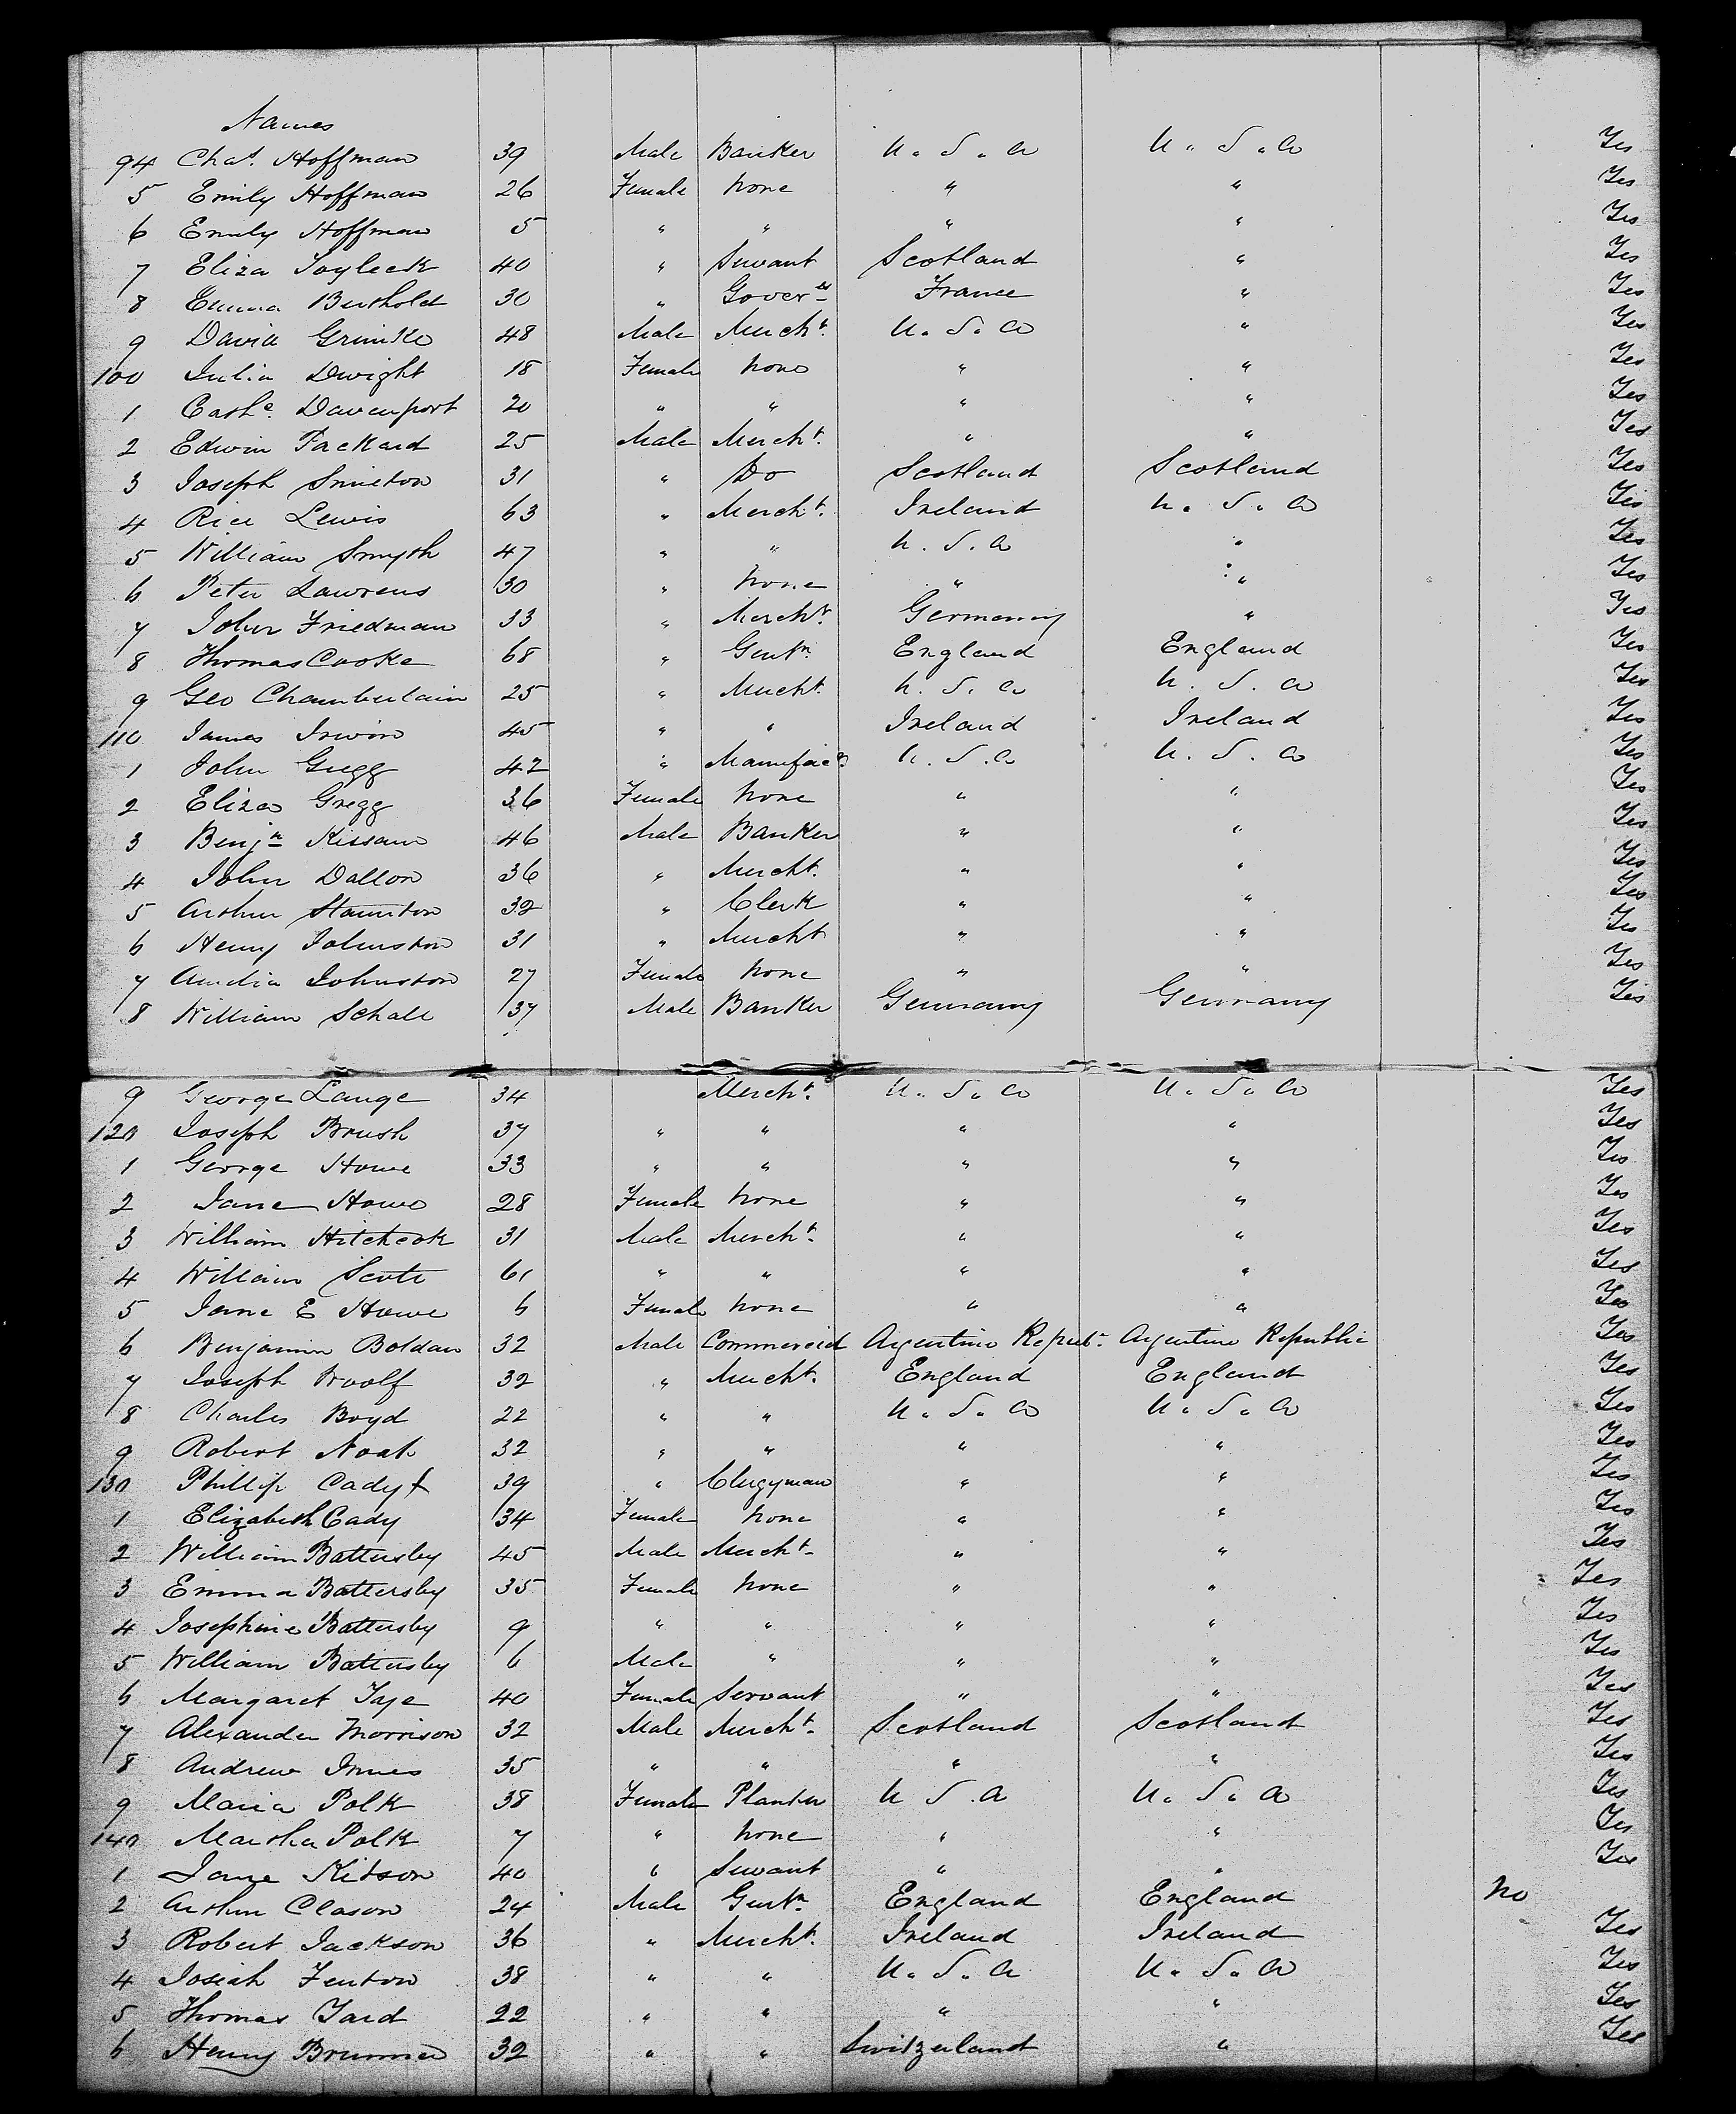 Names
94 Chas. Hoffman 39 Male Banker U. S. A U. S. A Yes
5 Emily Hoffman 26 Female None " " Yes
6 Emily Hoffman 5 " " " " Yes
7 Eliza 40 " Servant Scotland " Yes
8 Emma Berthold 30 " Goverss France " Yes
9 David Grimke 48 Male Mercht. U. S. A " Yes
100 Julia Dwight 18 Female None " " Yes
1 Cathe. Davenport 20 " " " " Yes
2 Edwin Packard 25 Male Mercht. " " Yes
3 Joseph Smieton 31 " Do Scotland Scotland Yes
4 Rice Lewis 63 " Mercht. Ireland U. S. A Yes
5 William Smyth 47 " " U. S. A " Yes
6 Peter Lawrens 30 " None " " Yes
7 John Friedman 33 " Mercht. Germany " Yes
8 Thomas Cooke 68 " Gentn. England England Yes
9 Geo Chamberlain 25 " Mercht. U. S. A U. S. A Yes
110 James Irwin 45 " " Ireland Ireland Yes
1 John Gregg 42 " Manufacr. U. S. A U. S. A Yes
2 Eliza Gregg 36 Female None " " Yes
3 Benjn Kissam 46 Male Banker " " Yes
4 John Dallon 36 " Mercht. " " Yes
5 Arthur Staunton 32 " Clerk " " Yes
6 Henry Johnston 31 " Mercht " " Yes
7 Amelia Johnston 27 Female None " " Yes
8 William Schall 37 Male Banker Germany Germany Yes
9 George Lange 34 Mercht. U. S. A U. S. A Yes
120 Joseph Brush 37 " " " " Yes
1 George Howe 33 " " " " Yes
2 Jane Howe 28 Female None " " Yes
3 William Hitchcok 31 Male Mercht. " " Yes
4 William Scott 61 " " " " Yes
5 Jane E Howe 6 Female None " " Yes
6 Benjamin Boldan 32 Male Commercial Argentine Repub. Argentine Republic Yes
7 Joseph Woolf 32 " Mercht. England England Yes
8 Charles Boyd 22 " " U. S. A U. S. A Yes
9 Robert Noak 32 " " " " Yes
130 Phillip Cady 39 " Clergyman " " Yes
1 Elizabeth Cady 34 Female None " " Yes
2 William Battersby 45 Male Mercht. " " Yes
3 Emma Battersby 35 Female None " " Yes
4 Josephine Battersby 9 " " " " Yes
5 William Battersby 6 Male " " " Yes
6 Margaret 40 Female Servant " " Yes
7 Alexander Morrison 32 Male Mercht. Scotland Scotland Yes
8 Andrew Innes 35 " " " " Yes
9 Maria Polk 38 Female Planter U S. A U. S. A Yes
140 Martha Polk 7 " None " " Yes
1 Jane Kitson 40 " Servant " " Yes
2 Arthur Clason 24 Male Gentn. England England No
3 Robert Jackson 36 " Mercht. Ireland Ireland Yes
4 Josiah Fenton 38 " " U. S. A U. S. A Yes
5 Thomas Yard 22 " " " " Yes
6 Henry Brunner 32 " " Switzerland " Yes